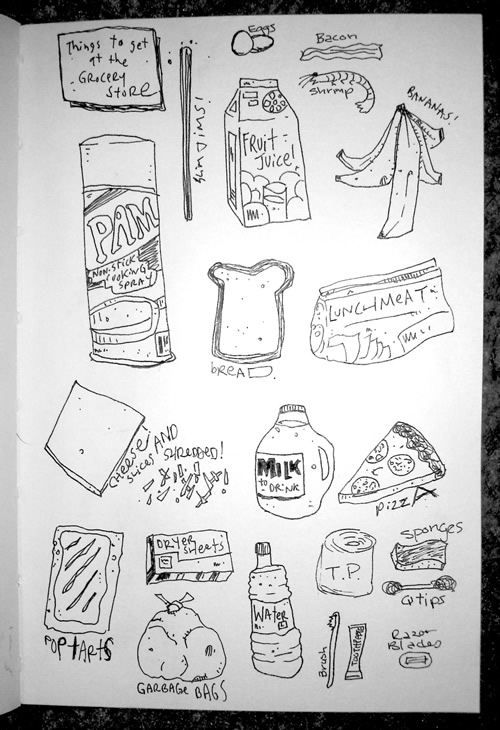 Things to get
at the
GROCERY
STORE
Eggs
Bacon
shrimp
BANANAS!
SLIM JIMS!
FRUIT-
JUICE!
PAM
NON-STICK
COOKING
SPRAY
breAD.
LUNCHMEAT
CHEESE!
SLICES AND
SHREDDED!
MILK
to
DRINK
PIZZA
POPTARTS
DRYER
sheets
GARBAGE BAGS
WATER
T.P.
Sponges
Qtips
Brush
Toothpaste
Razor
Blades